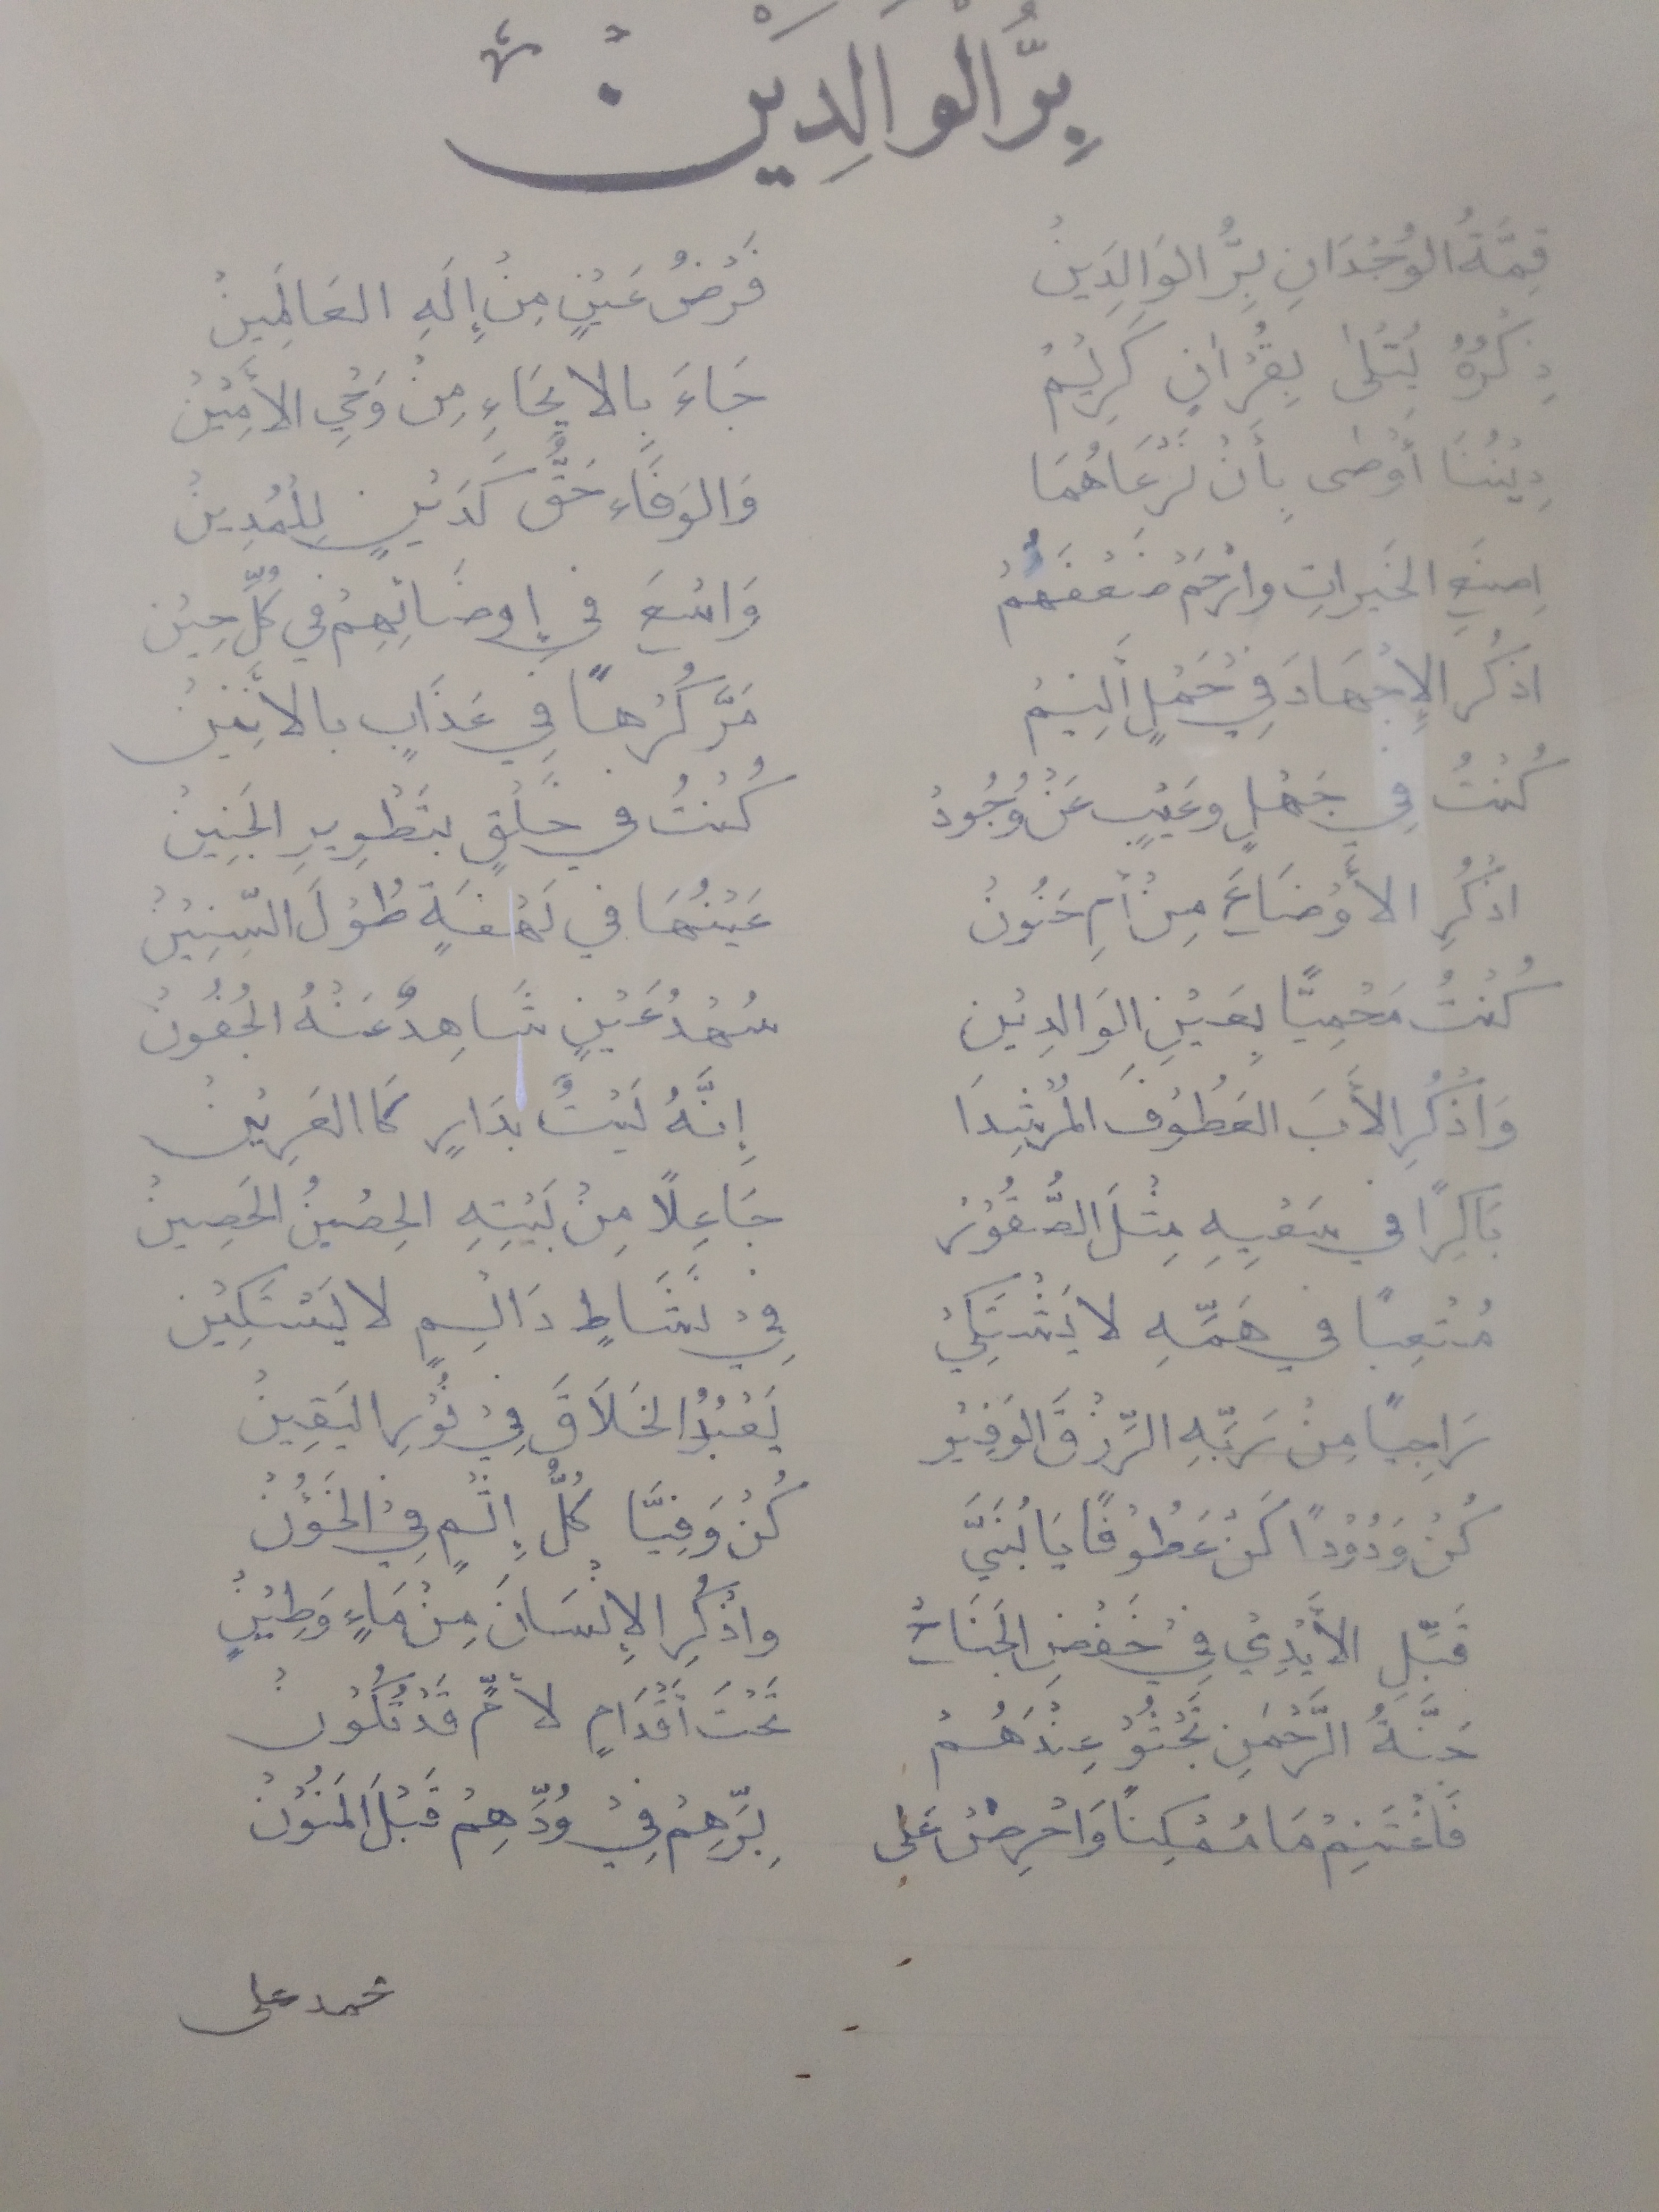 بِرُّ الْوَالِدَيْنْ
قِمَّةُ الوُجْدَانِ بِرُّ الوَالِدَينْ فَرْضُ عَيْنٍ مِنْ إِلَهِ العَالَمِينْ
ذِكْرُهُ يُتْلَىٰ بِقُرْانٍ كَرِيْمْ جَاءَ بِالايحَاءِ مِنْ وَحْيِ الأَمِيْنْ
دِيْنُنَا أَوْصَى بِأَنْ نَرْعَاهُمَا وَالوَفَاء حَقٌّ كَدَيْنٍ لِلْمُدِينْ
اِصنَعِ الخَيراتِ وارْحَمْ ضَعْفَهُمْ وَاسْعَ في إرضَائِهِمْ في كُلِّ حِيْن
اذكُرِ الإجْهَادَ فِي حَمْلٍ أَلِيْمْ مَرَّ كُرْهًا فِي عَذَابٍ بالأَنِيْنْ
كُنْتُ فِي جَهْلٍ وغَيْبٍ عَنْ وُجُودْ كُنْتُ في خَلْقٍ بتَطْوِيرِ الجَنِينْ
اذْكُرِ الأَوْضَاعَ مِنْ أُمٍ حَنُونْ عَيْنُهَا في لَهْفَةٍ طُوْلَ السِّنِيْنْ
كُنْتُ مَحْمِيًّا بِعَيْنِ الوَالِدِيْن سُهْدُ عَيْنٍ شَاهِدٌ عَنْهُ الجُفُونْ
وَاذْكُرِ الأَبَ العَطُوْفَ المُرْشِدَا إِنَّهُ لَيْثٌ بدَارٍ كَالعَرِيْنْ
بَاكِرًا في سَعْيِهِ مِثْلَ الصُّقُوْرْ جَاعِلًا مِنْ بَيْتِهِ الحِصْنُ الحَصِينْ
مُتْعِبًا في هَمِّهِ لا يَشْتَكِيْ فِيْ نَشَاطٍ دَائِمٍ لا يَسْتَكِيْن
رَاجِيًا مِنْ رَبِّهِ الرِّزْقَ الوَفِيْر يَعْبُدُ الخَلاَقَ فِيْ نُوْرِ اليَقِينْ
كُنْ وَدُوْدًا كَنْ عَطُوْفًا يَا بُنَيَّ كُنْ وَفِيًّا كُلُّ إِثْمٍ فِيْ الخَؤُنْ
قَبِّلِ الأَيْدِيْ فِيْ خَفْضِ الجَنَاحْ واذْكُرِ الإِنْسَانَ مِنْ مَاءٍ وَطِيْنٍ
جَنَّةُ الرَّحْمٰنِ تَحْنُوْ عِنْدَهُمْ تَحْتَ أَقْدَامٍ لأُمٍّ قَدْ تَكُوْنْ
فَاغْتَنِمْ مَا مُمْكِنًا وَاحْرِصْ عَلى بِرِّهِمْ فِيْ وُدِّهِمْ قَبْلَ المَنُوْنْ
محمد على